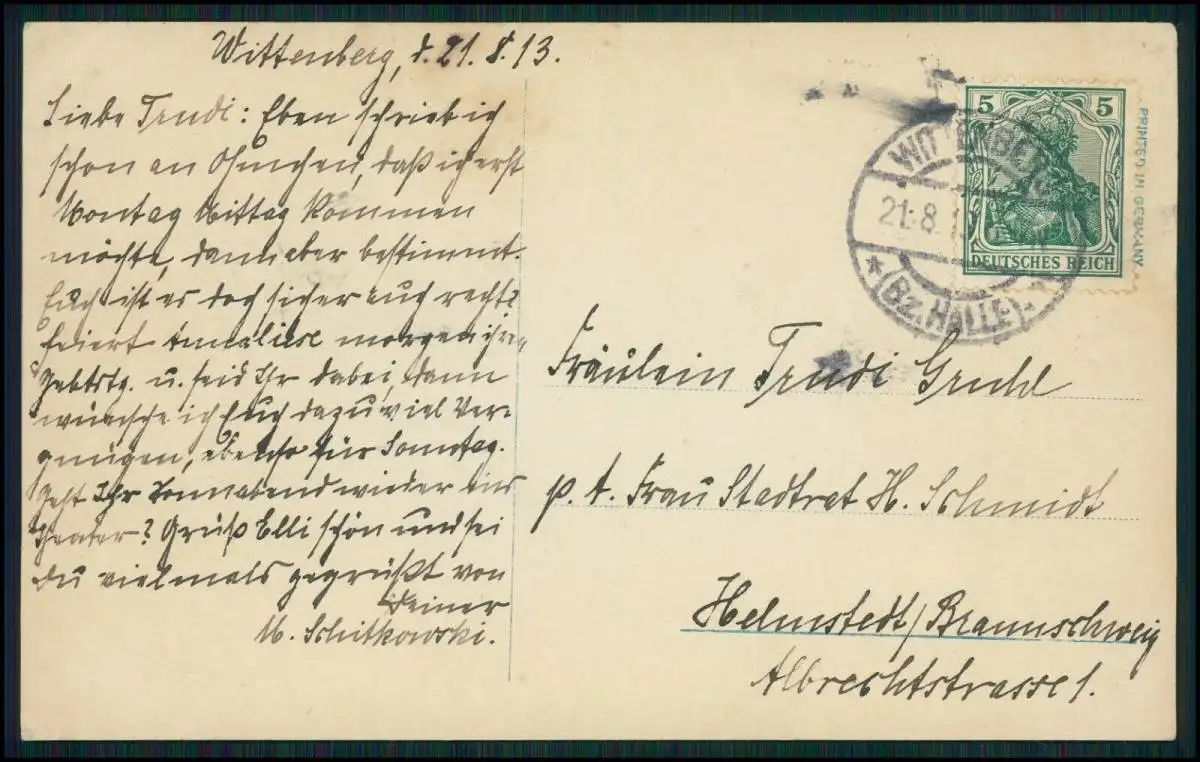 Wittenberg, d. 21. 8. 13.
Liebe Trudi: Eben schrieb ich
schon an, daß ich erst
Montag Mittag kommen
möchte, dann aber bestimmt.
Euch ist es doch sicher auch recht?
feiert Anneliese morgen ihren
Gebtstg. u. seid Ihr dabei, dann
wünsche ich Euch dazu viel Ver-
gnügen, ebenso für Sonntag.
Geht Ihr Sonnabend wieder ins
Theater? Grüß Elli schön und sei
Du vielmals gegrüßt von
Deiner
M. Schitkowski.
5 5
DEUTSCHES REICH
PRINTED IN GERMANY
WITTENBERG
21.8.
(Bz. HALLE)
Fräulein Trudi Gruhl
p. A. Frau Stadtrat H. Schmidt
Helmstedt/Braunschweig
Albrechtstrasse 1.